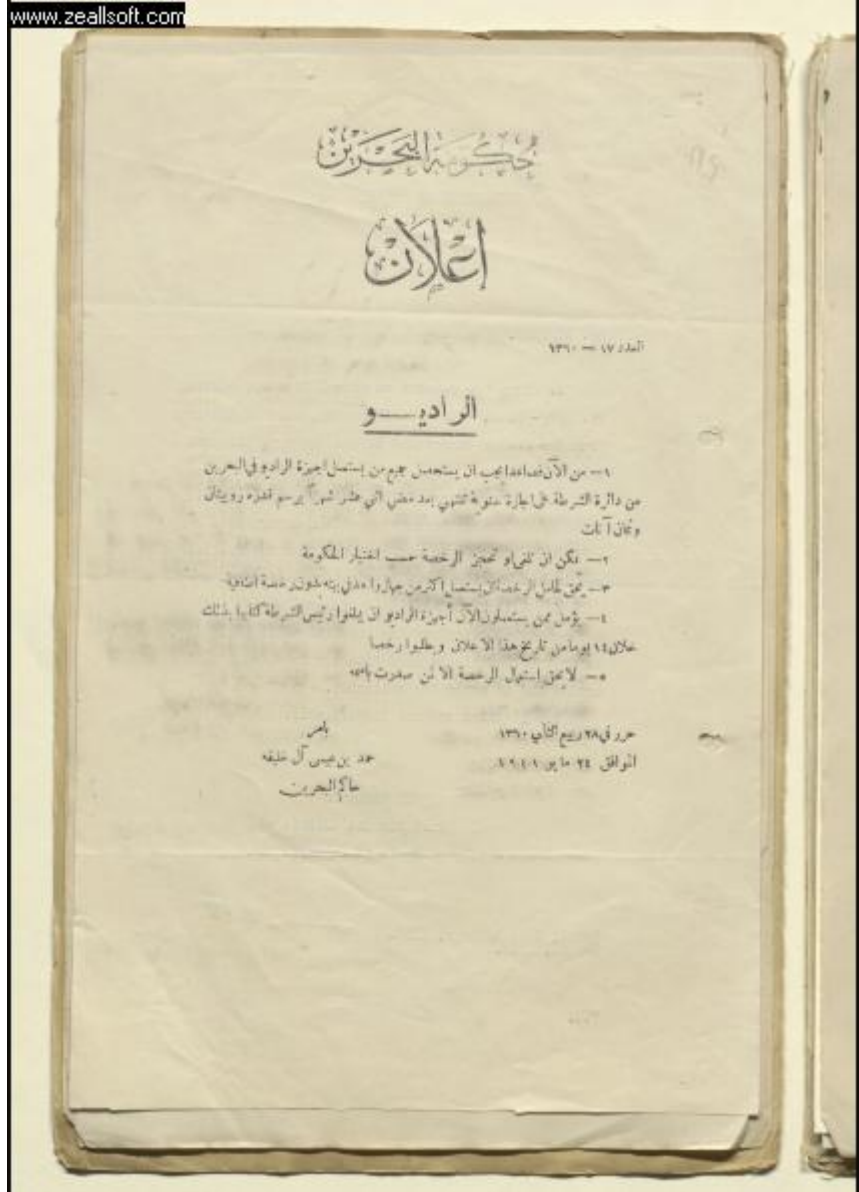 www.zeallsoft.com
حكومة البحرين
إعلان
العدد ١٧ — ١٣٦٠
الراديـــو
١— من الآن فصاعدا يجب ان يستحصل جميع من يستعمل اجهزة الراديو في البحرين
من دائرة الشرطة على اجازة سنوية تنتهي بعد مضي اثني عشر شهراً برسم قدره روبيتان
وثمان آنات
٢— يمكن ان تلغى او تحجز الرخصة حسب اختيار الحكومة
٣— يحق لحامل الرخصة ان يستعمل اكثر من جهاز واحد في بيته بدون رخصة اضافية
٤— يؤمل ممن يستعملون الآن أجهزة الراديو ان يبلغوا رئيس الشرطة كتابيا بذلك
خلال ١٤ يوما من تاريخ هذا الاعلان ويطلبوا رخصا
٥— لا يحق استعمال الرخصة الا لمن صدرت باسمه
حرر في ٢٨ ربيع الثاني ١٣٦٠
الموافق ٢٤ مايو ١٩٤١
بامر
حمد بن عيسى آل خليفه
حاكم البحرين